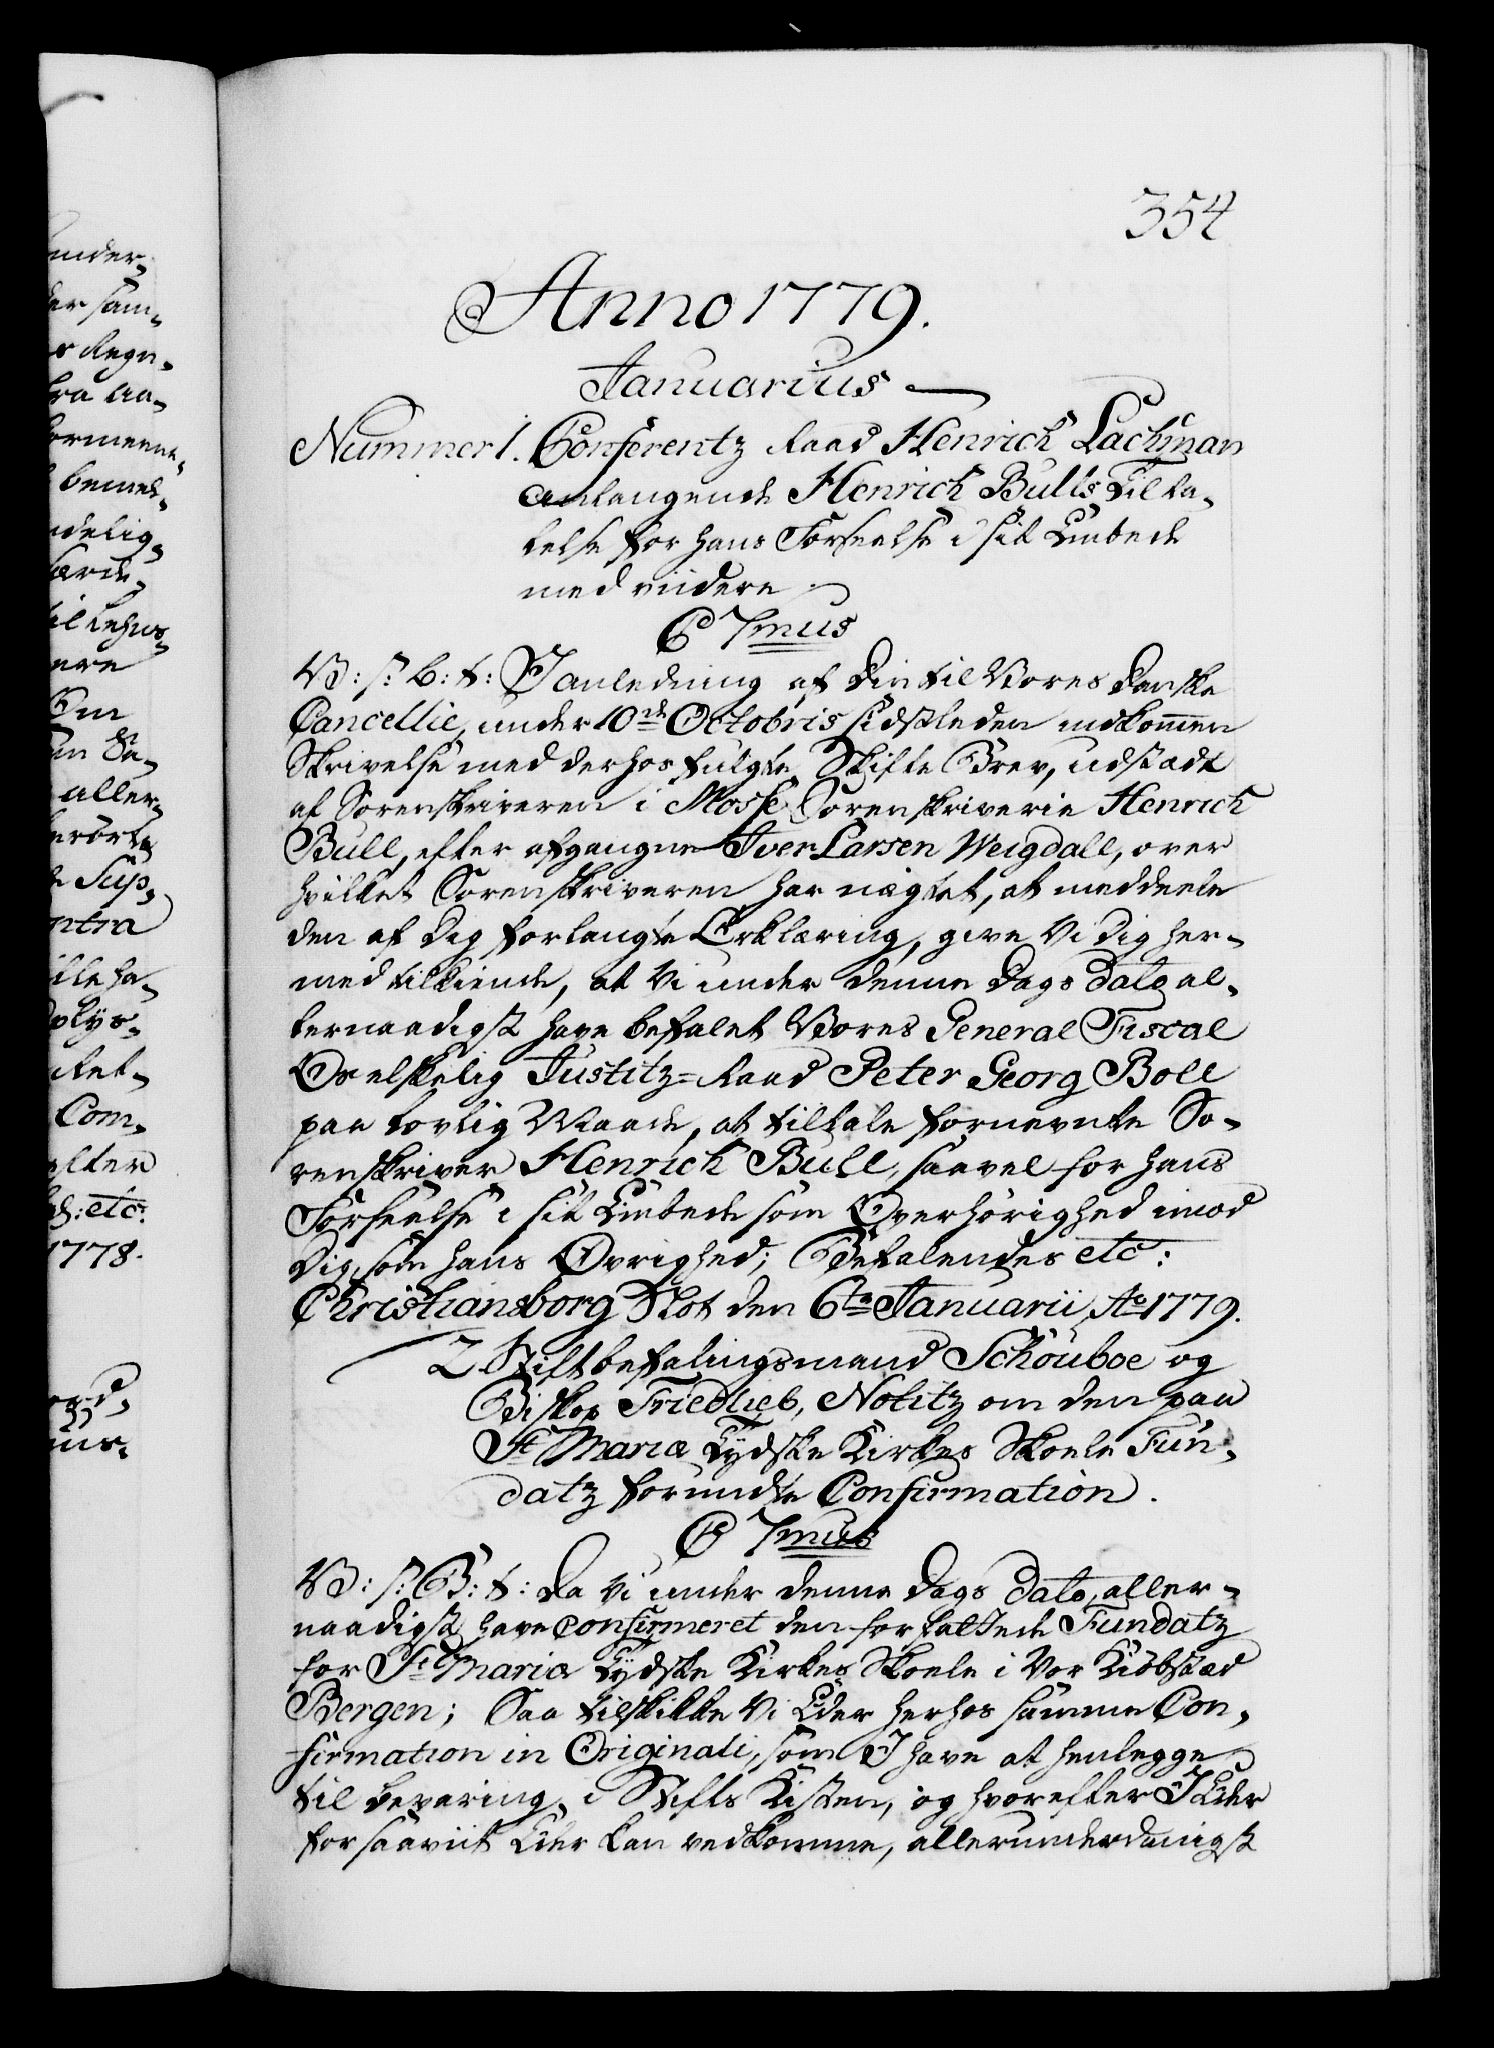 354
Anno 1779.
Januarius
Nummer 1. Conferentz Raad Henrich Lachman
anlangende Henrich Bulls Tilta-
telse for hans Forseelse i sit Embede
med viidere
C 7mus
V: s: b: t: I anledning af Din til Vores Danske
Cancellie, under 10de Octobris sidstleden indkommen
Skrivelse med derhos fulgte Skifte Brev, udstædt
af Sorenskriveren i Mosse Sorenskriverie Henrich
Bull, efter afgangne Iver Larsen Weigdall, over
hvilket Sorenskriveren har nægtet, at meddeele
den af Dig forlangte Erklæring, give Vi Dig her-
med tilkiende, at Vi under denne Dags Dato al-
lernaadigst have befalet Vores General Fiscal
Os elskelig Justitz-Raad Peter Georg Boll
paa lovlig Maade, at tiltale fornevnte So-
renskriver Henrich Bull, saavel for hans
Forseelse i sit Embede som Overhørighed imod
Dig, som hans Øvrighed; Befalendes etc:
Christiansborg Slot den 6te Januarii Ao 1779.
2 Stiftbefalingsmand Schouboe og
Biskop Friedlieb, Notitz om den paa
St Mariæ Tydske Kirkes Skoele Fun-
datz forundte Confirmation.
C 7mus
V: s: B: t: Da Vi under denne Dags Dato, aller-
naadigst have confirmeret den forfattede Fundatz
for St Mariæ Tydske Kirkes Skoele i Vor Kiøbstæd
Bergen; Saa tilskikke Vi Eder herhos samme Con-
firmation in Originali, som I have at henlegge
til bevaring i Stifts Kisten, og hvorefter I Eder
forsaaviit Eder kan vedkomme, allerunderdanigst